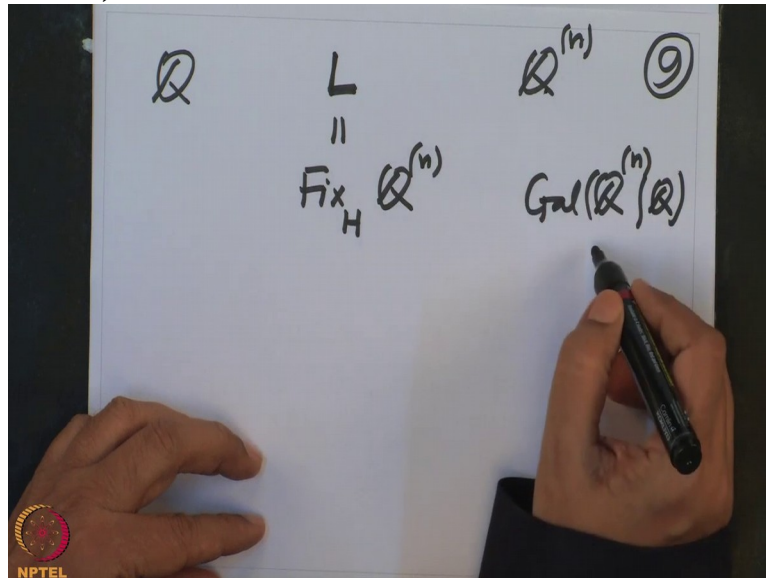 ℚ L ℚ⁽ⁿ⁾ ⑨
||
Fix_H ℚ⁽ⁿ⁾ Gal(ℚ⁽ⁿ⁾|ℚ)
NPTEL